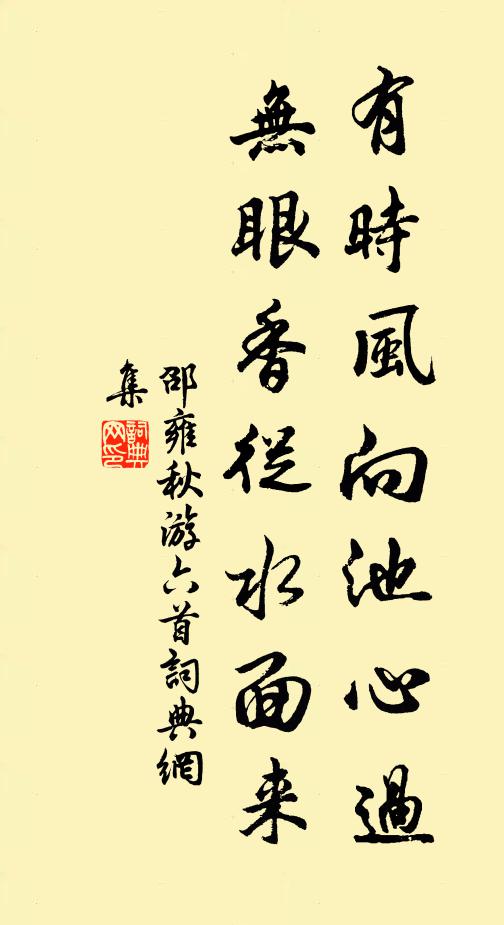 有時風向池心過
無眼香從水面来
邵雍秋游六首詞典網
集
詞典網印